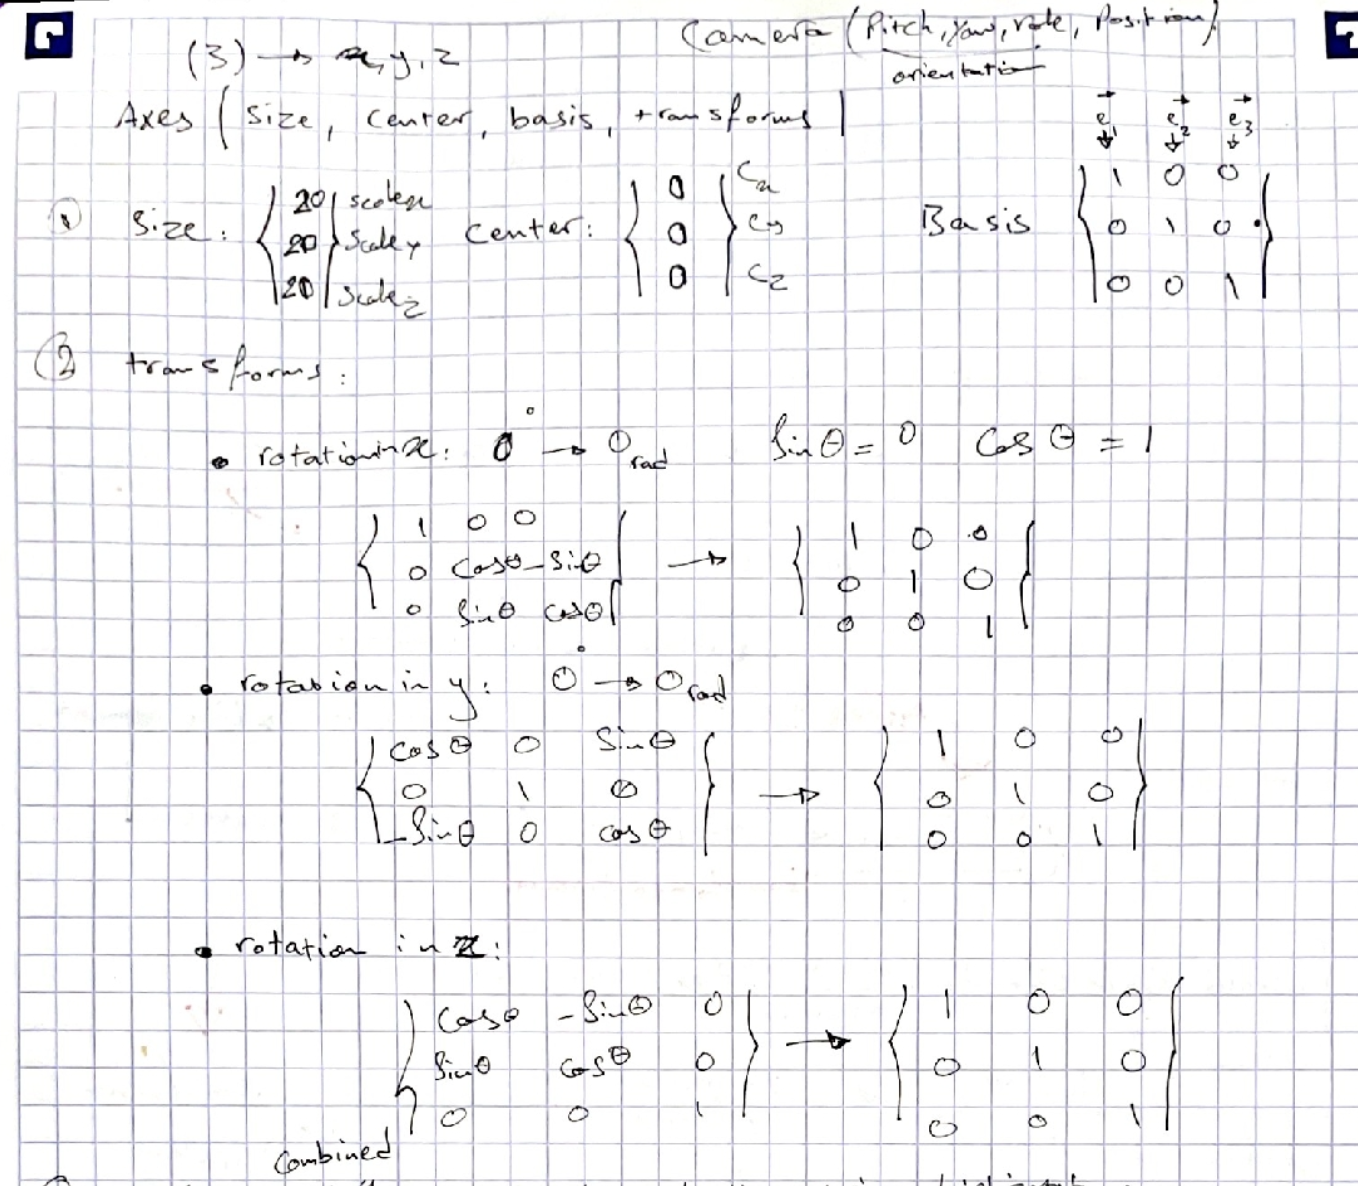 Camera (Pitch, Yaw, role, Position)
orientation
(3) → x, y, z
Axes ( size, center, basis, transforms )
e1 e2 e3
① Size: { 20 20 20 } scalex scaley scalez center: { 0 0 0 } Cx Cy Cz Basis
1 0 0
0 1 0
0 0 1
② transforms:
• rotation in x: 0° → 0 rad sin θ = 0 cos θ = 1
1 0 0 → 1 0 0
0 cosθ -sinθ 0 1 0
0 sinθ cosθ 0 0 1
• rotation in y: 0° → 0 rad
cos θ 0 sin θ → 1 0 0
0 1 0 0 1 0
-sin θ 0 cos θ 0 0 1
• rotation in z:
cosθ -sinθ 0 → 1 0 0
sinθ cosθ 0 0 1 0
0 0 1 0 0 1
Combined